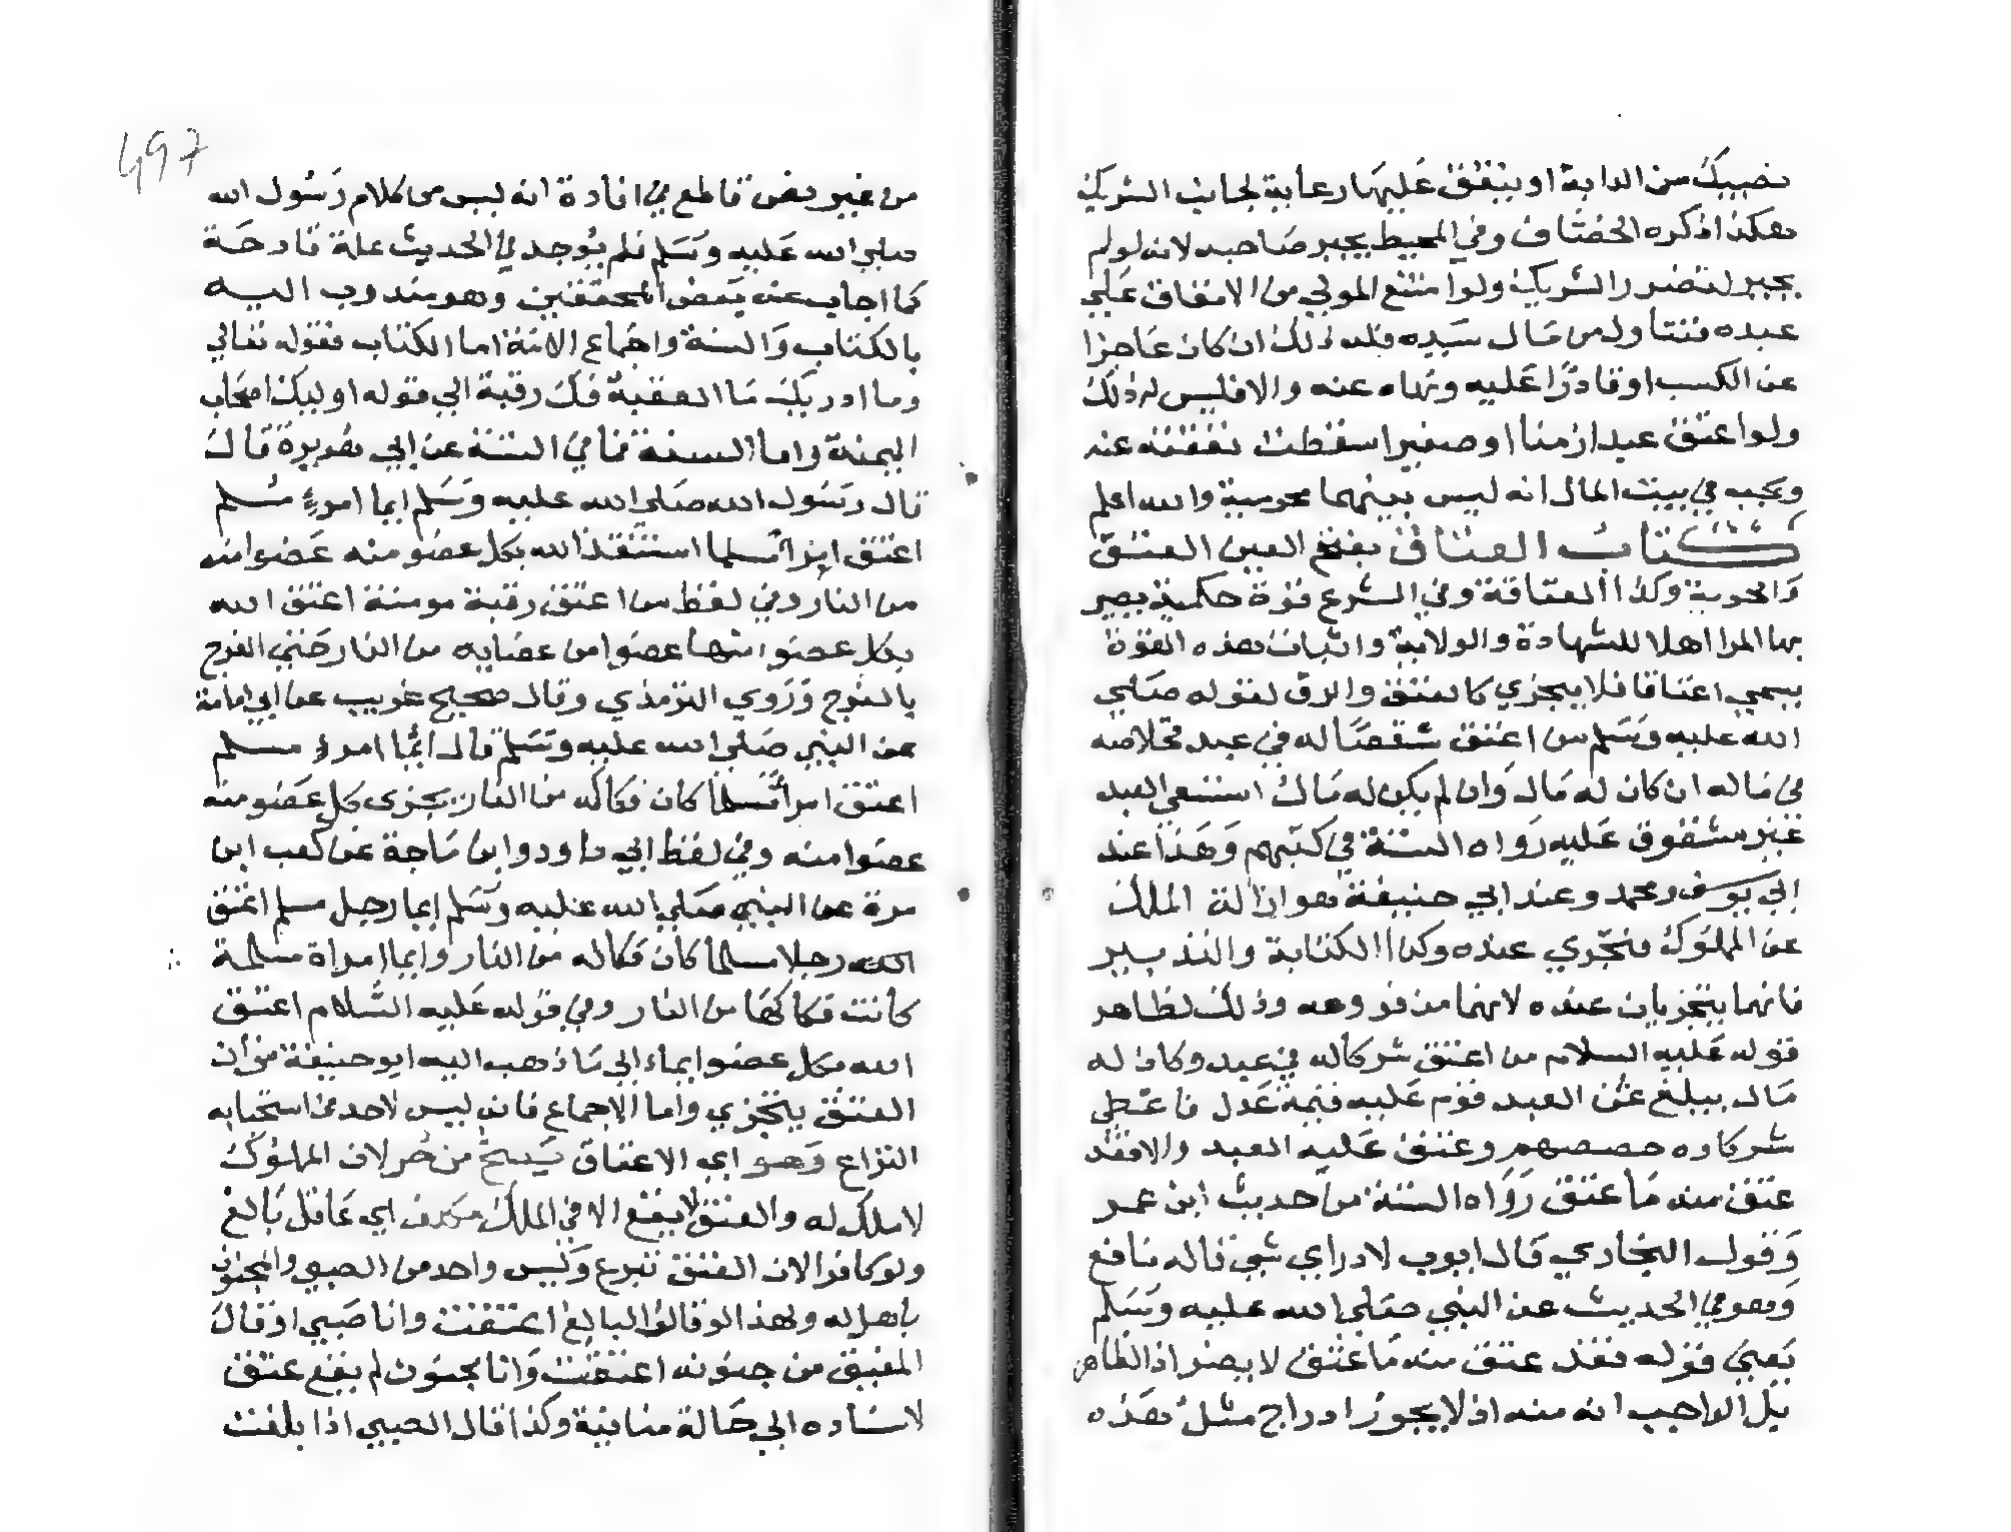 نصيبك من الدابة او ينفق عليها رعاية لجانب الشريك
هكذا ذكره الخصاف وفي المحيط يجبر صاحبه لانه لو لم
يجبر لتضرر الشريك ولو امتنع المولي من الانفاق علي
عبده فتناول من مال سيده فله ذلك ان كان عاجزا
عن الكسب او قادرا عليه ونهاه عنه والا فليس له ذلك
ولو اعتق عبدا زمنا او صغيرا سقطت نفقته عنه
ويجب في بيت المال انه ليس بينهما محرمية والله اعلم
كتاب العتاق بفتح العين العتق
والحرية وكذا العتاقة وفي الشرع قوة حكمية يصير
بها المرا اهلا للشهادة والولاية واثبات هذه القوة
يسمي اعتاقا فلا يتجزي كالعتق والرق لقوله صلي
الله عليه وسلم من اعتق شقصا له في عبد فخلاصه
في ماله ان كان له مال وان لم يكن له مال استسعي العبد
غير مشقوق عليه رواه الستة في كتبهم وهذا عند
ابي يوسف ومحمد وعند ابي حنيفة هو ازالة الملك
عن المملوك فتجزي عنده وكذا الكتابة والتدبير
فانهما يتجزيان عنده لانهما من فروعه وذلك لظاهر
قوله عليه السلام من اعتق شركا له في عبد وكان له
مال يبلغ ثمن العبد قوم عليه قيمة عدل فاعطي
شركاوه حصصهم وعتق عليه العبد والا فقد
عتق منه ما عتق رواه الستة من حديث ابن عمر
وقول البخاري قال ايوب لا دراي شي قاله نافع
وهو في الحديث عن النبي صلي الله عليه وسلم
يعني قوله فقد عتق منه ما عتق لا يضر اذ الظاهر
بل الواجب انه منه اذ لا يجوز ادراج مثل هذه
497
من غير نص قاطع في افادة انه ليس من كلام رسول الله
صلي الله عليه وسلم فلم يوجد في الحديث علة قادحة
كما اجاب عنه بعض المحققين وهو مندوب اليه
بالكتاب والسنة واجماع الامة اما الكتاب فقوله تعالي
وما ادريك ما العقبة فك رقبة الي قوله اوليك اصحاب
اليمنة واما السنة فما في الستة عن ابي هريرة قال
قال رسول الله صلي الله عليه وسلم ايما امرءٍ مسلم
اعتق امرا مسلما استنقذ الله بكل عضو منه عضوا منه
من النار وفي لفظ من اعتق رقبة مومنة اعتق الله
بكل عضو منها عضوا من عضايه من النار حتي الفرج
بالفرج وروي الترمذي وقال صحيح غريب عن ابي امامة
عن النبي صلي الله عليه وسلم قال ايما امرءٍ مسلم
اعتق امرأ مسلما كان فكاكه من النار يجزى كل عضو منه
عضوا منه وفي لفظ ابي داود وابن ماجة عن كعب ابن
مرة عن النبي صلي الله عليه وسلم ايما رجل مسلم اعتق
رجلا مسلما كان فكاكه من النار وايما امراة مسلمة
كانت فكاكها من النار وفي قوله عليه السلام اعتق
الله بكل عضو ايماء الي ما ذهب اليه ابو حنيفة من ان
العتق يتجزي واما الاجماع فانه ليس لاحد من استحبابه
النزاع وهو اي الاعتاق يصح من حر لان المملوك
لا ملك له والعتق لا يقع الا في الملك مكلف اي عاقل بالغ
ولو كافرا لان العتق تبرع وليس واحد من الصبي والمجنون
باهل له ولهذا لو قال البالغ اعتقت وانا صبي او قال
المفيق من جنونه اعتقت وانا مجنون لم يقع عتق
لاسناده الي حالة منافية وكذا قال الصبي اذا بلغت